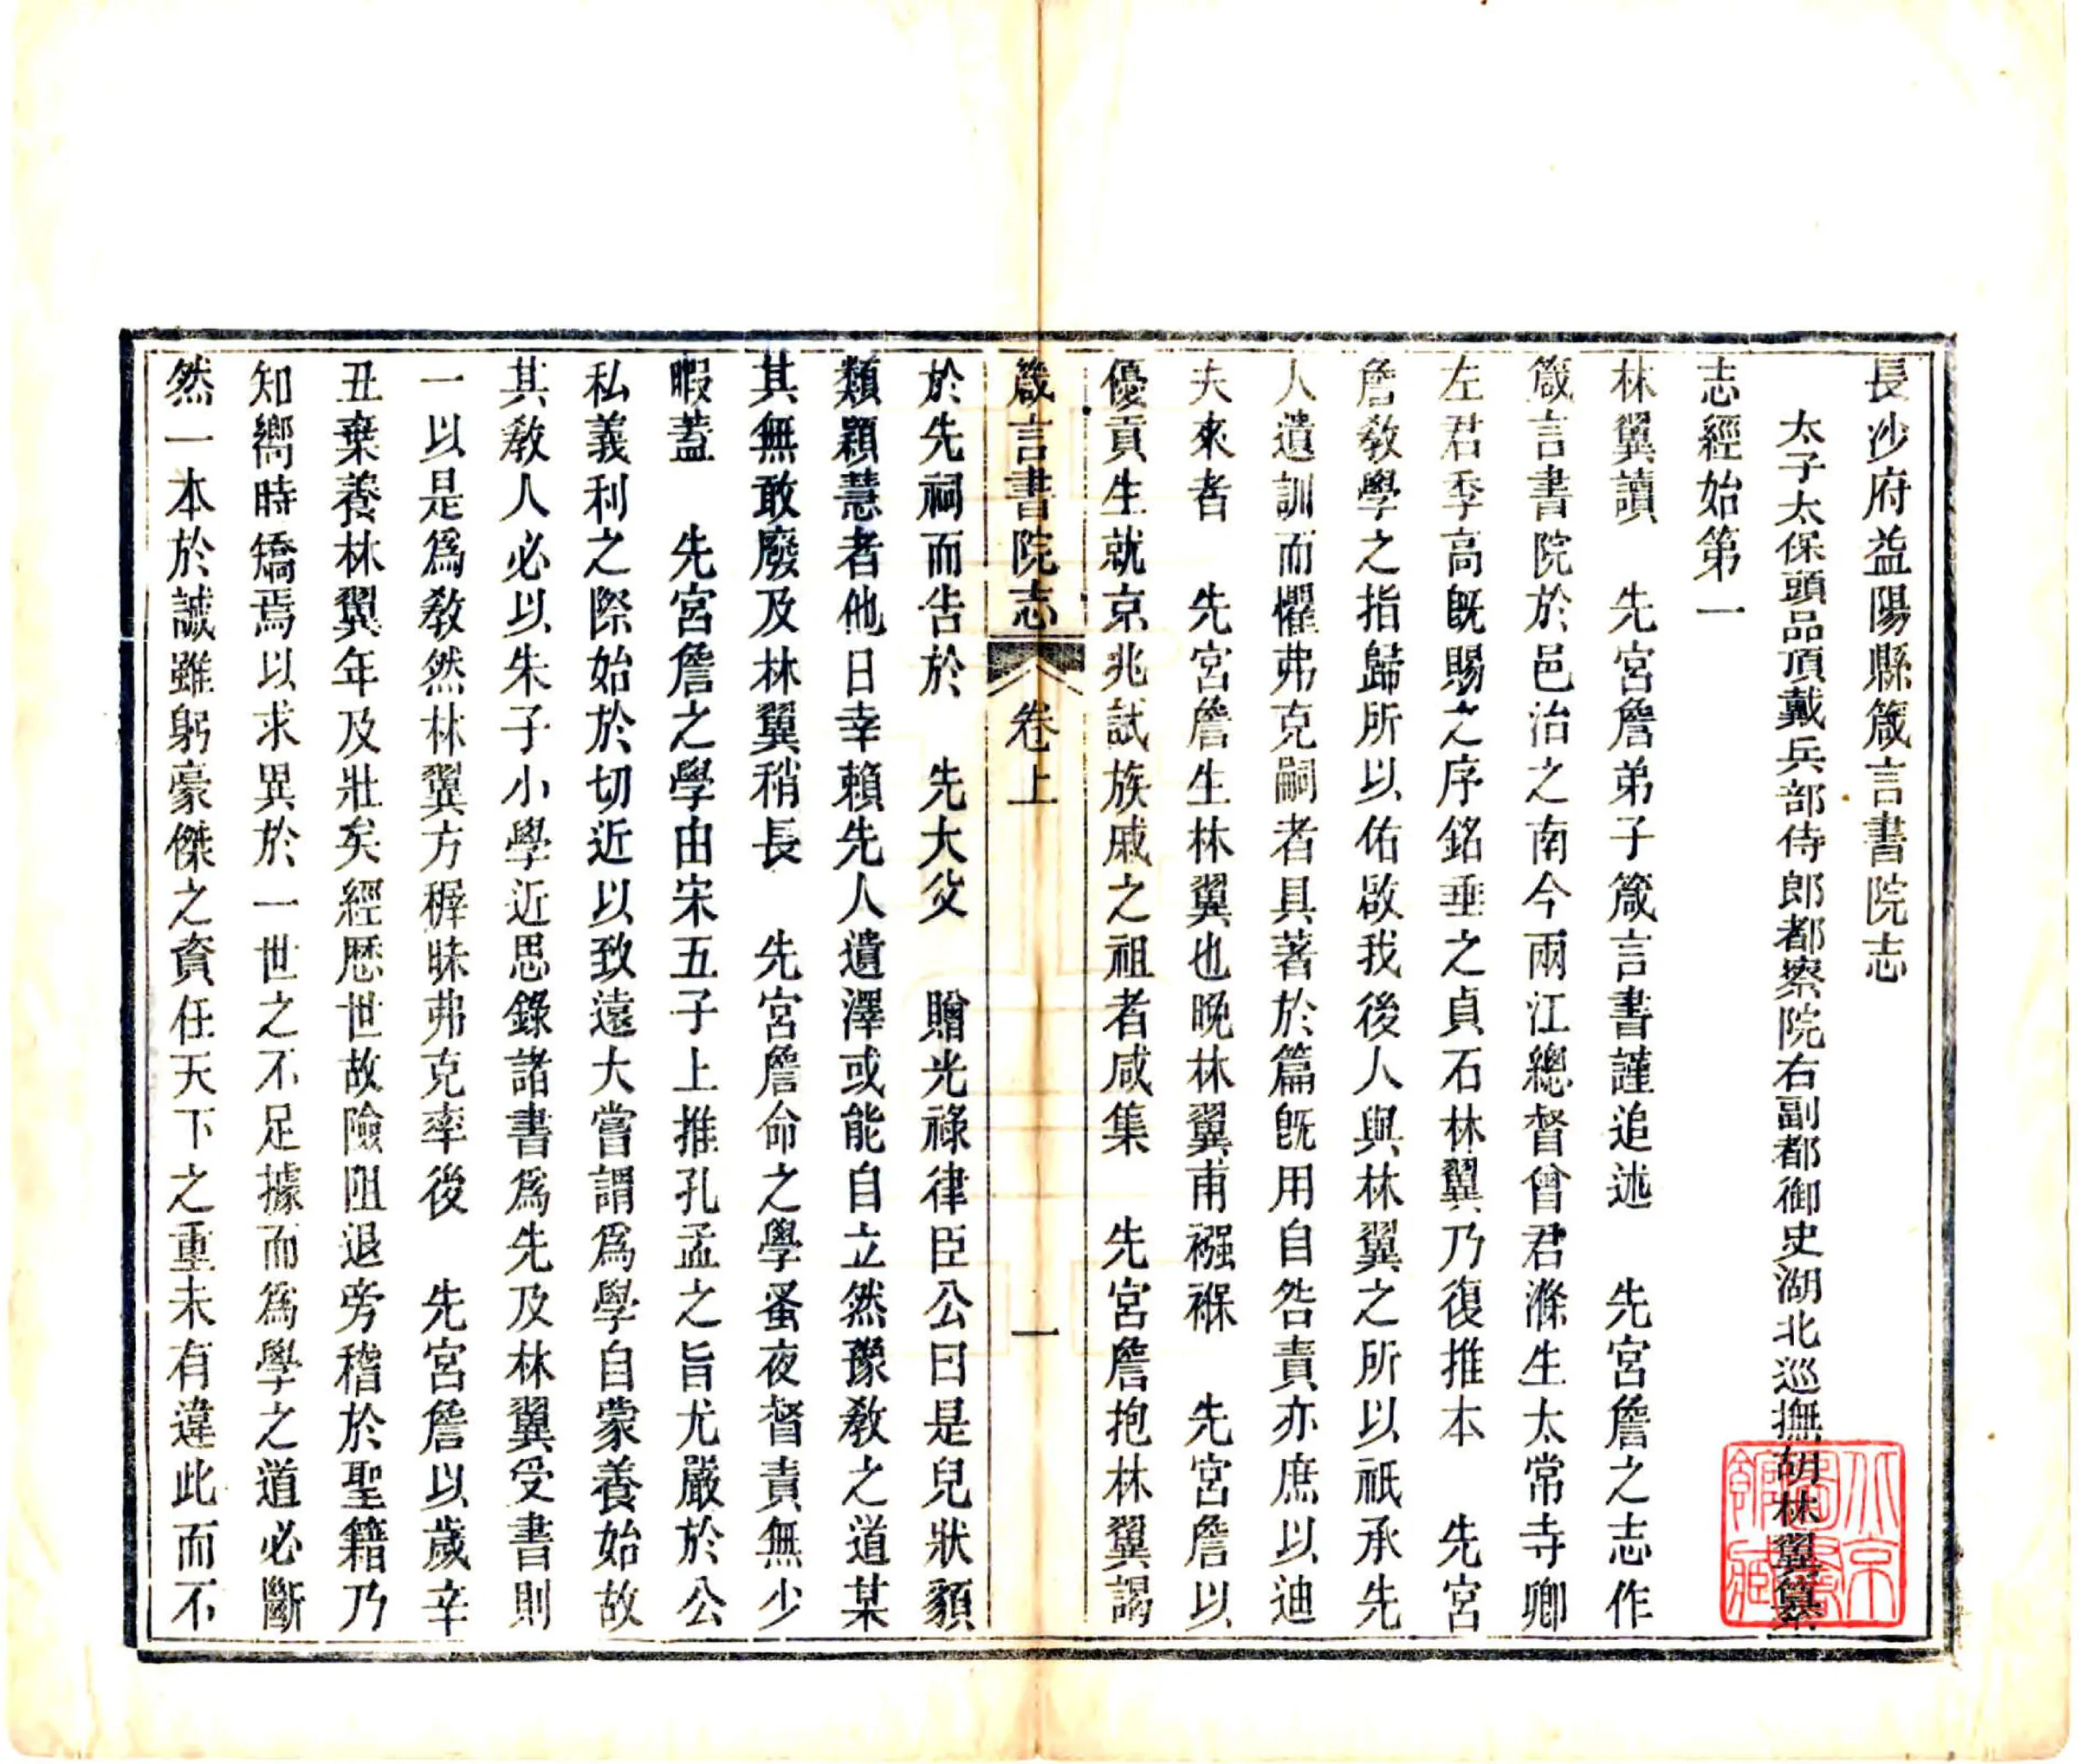 長沙府益陽縣箴言書院志
太子太保頭品頂戴兵部侍郎都察院右副都御史湖北巡撫胡林翼纂
志經始第一
林翼讀　先宮詹弟子箴言書謹追述　先宮詹之志作
箴言書院於邑治之南今兩江總督曾君滌生太常寺卿
左君季高旣賜之序銘垂之貞石林翼乃復推本　先宮
詹敎學之指歸所以佑啟我後人與林翼之所以祇承先
人遺訓而懼弗克嗣者具著於篇旣用自咎責亦庶以迪
夫來者　先宮詹生林翼也晚林翼甫襁褓　先宮詹以
優貢生就京兆試族戚之祖者咸集　先宮詹抱林翼謁
箴言書院志　卷上　一
於先祠而告於　先大父　贈光祿律臣公曰是兒狀貌
類穎慧者他日幸賴先人遺澤或能自立然豫敎之道某
其無敢廢及林翼稍長　先宮詹命之學蚤夜督責無少
暇蓋　先宮詹之學由宋五子上推孔孟之旨尤嚴於公
私義利之際始於切近以致遠大嘗謂爲學自蒙養始故
其敎人必以朱子小學近思錄諸書爲先及林翼受書則
一以是爲敎然林翼方穉昧弗克率後　先宮詹以歲辛
丑棄養林翼年及壯矣經歷世故險阻退旁稽於聖籍乃
知嚮時矯焉以求異於一世之不足據而爲學之道必斷
然一本於誠雖躬豪傑之資任天下之重未有違此而不
北京圖書館藏